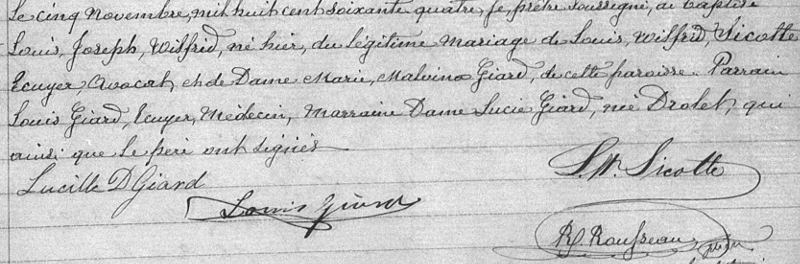 Le cinq Novembre, mil huit cent soixante quatre, je, prêtre soussigné, ai baptisé
Louis, Joseph, Wilfrid, né hier, du légitime mariage de Louis, Wilfrid, Sicotte
Ecuyer, Avocat, et de Dame Marie, Malvina Giard, de cette paroisse. Parrain
Louis Giard, Ecuyer, Médecin, Marraine Dame Lucie Giard, née Drolet, qui
ainsi que le père ont signés
L. W. Sicotte
Lucille D Giard
Louis Giard
Rousseau